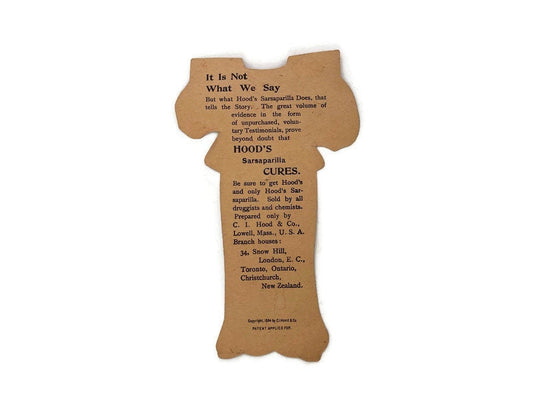 It Is Not
What We Say
But what Hood's Sarsaparilla Does, that
tells the Story. The great volume of
evidence in the form
of unpurchased, volun-
tary Testimonials, prove
beyond doubt that
HOOD'S
Sarsaparilla
CURES.
Be sure to get Hood's
and only Hood's Sar-
saparilla. Sold by all
druggists and chemists.
Prepared only by
C. I. Hood & Co.,
Lowell, Mass., U. S. A.
Branch houses:
34, Snow Hill,
London, E. C.,
Toronto, Ontario,
Christchurch,
New Zealand.
Copyright, 1894 by C.I.Hood & Co.
PATENT APPLIED FOR